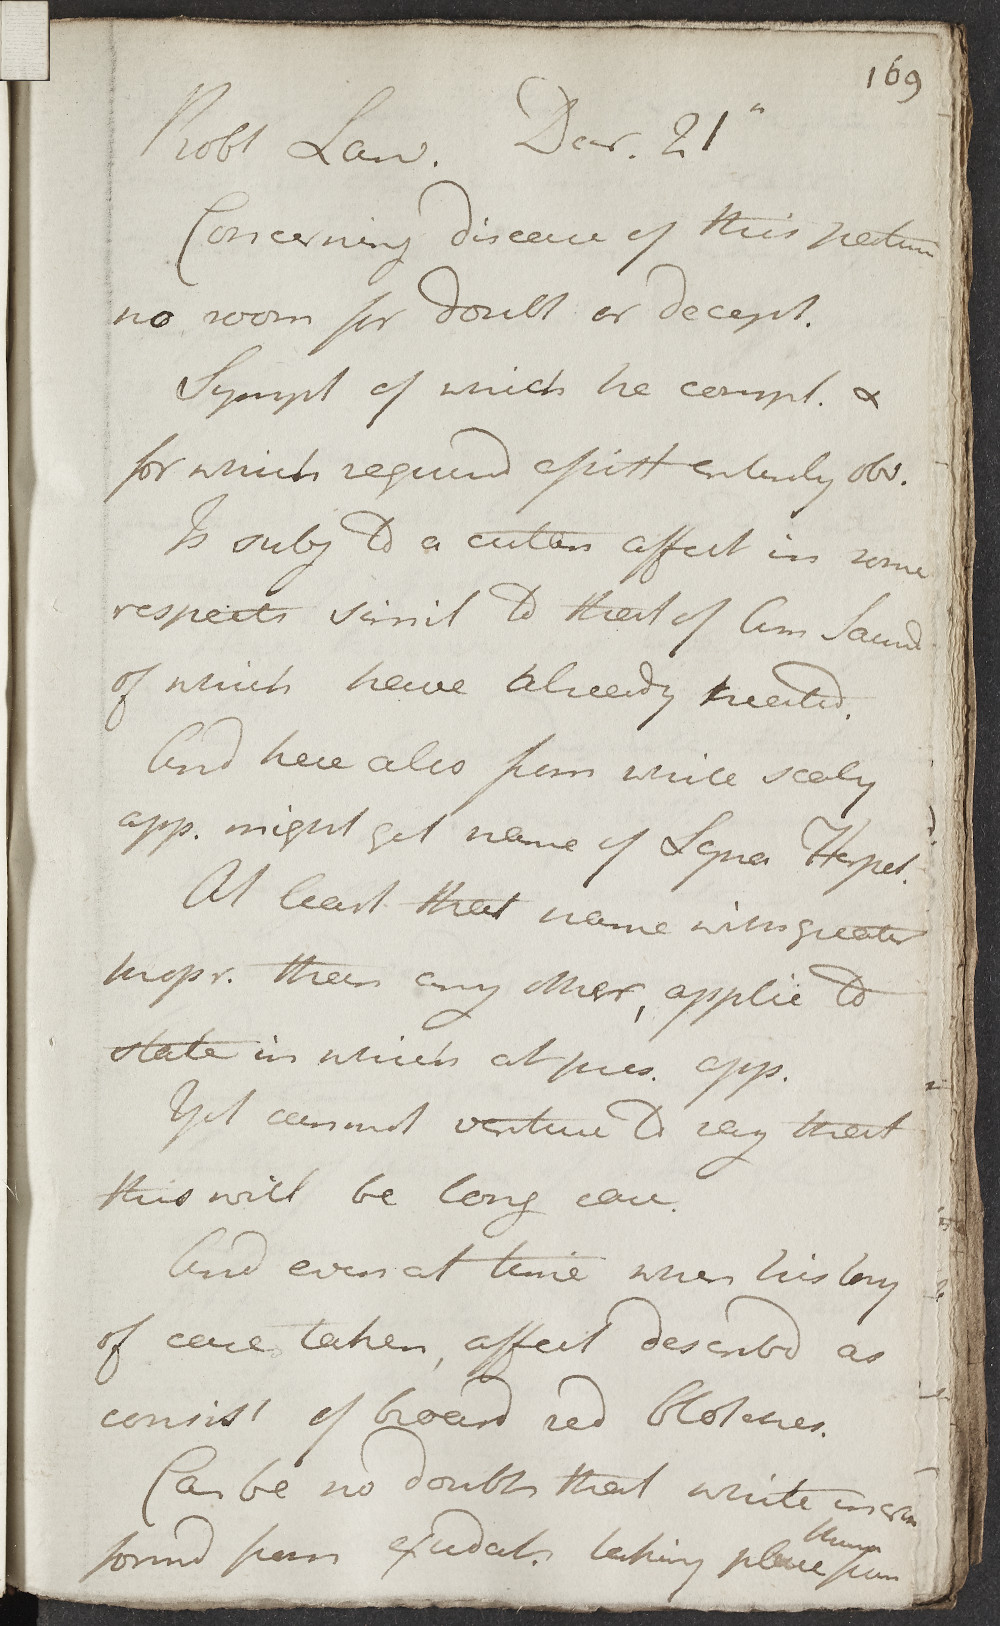 169
Robt Law. Decr. 21"
Concerning disease of this patient
no room for doubt or decept.
Sympt of which he compl. &
for which requird assist evidently obv.
Is subj to a cutan affect in some
respects simil to that of Ann Saund
of which have already treated.
And here also from white scaly
app. might get name of Lepra Herpet.
At least that name with greater
propr. than any other, applic to
state in which at pres. app.
Yet cannot venture to say that
this will be long case.
And even at time when history
of case taken, affect describd as
consist of broad red blotches.
Can be no doubt that white incrus
formd from exudat. taking place from